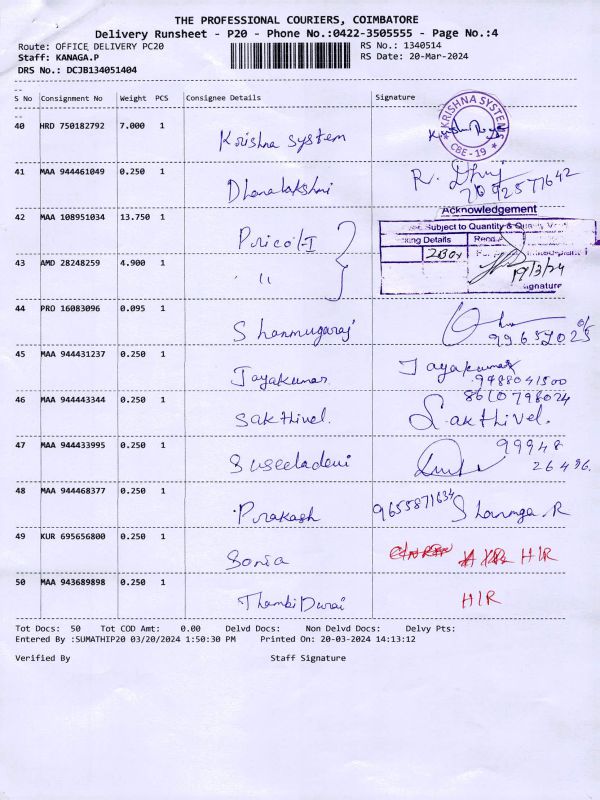 THE PROFESSIONAL COURIERS, COIMBATORE
Delivery Runsheet - P20 - Phone No.:0422-3505555 - Page No.:4
Route: OFFICE DELIVERY PC20
RS No.: 1340514
Staff: KANAGA.P
RS Date: 20-Mar-2024
DRS No.: DCJB134051404
S No Consignment No Weight PCS Consignee Details Signature
40 HRD 750182792 7.000 1 Krishna System
KRISHNA SYSTEM
CBE-19
41 MAA 944461049 0.250 1 Dhanalakshmi R.
42 MAA 108951034 13.750 1 Pricol-I
Acknowledgement
Subject to Quantity &
king Details
2Box
43 AMD 28248259 4.900 1 "
19/3/24
signature
44 PRO 16083096 0.095 1 Shanmugaraj
45 MAA 944431237 0.250 1 Jayakumar Jayakumar
9488041500
46 MAA 944443344 0.250 1 Sakthivel. Sakthivel.
8610798024
47 MAA 944433995 0.250 1 Suseeladevi 99948
26496.
48 MAA 944468377 0.250 1 Prakash 9655871634 Shanmga.R
49 KUR 695656800 0.250 1 Sonia HIR
50 MAA 943689898 0.250 1 Thambi Durai HIR
Tot Docs: 50 Tot COD Amt: 0.00 Delvd Docs: Non Delvd Docs: Delvy Pts:
Entered By :SUMATHIP20 03/20/2024 1:50:30 PM Printed On: 20-03-2024 14:13:12
Verified By Staff Signature